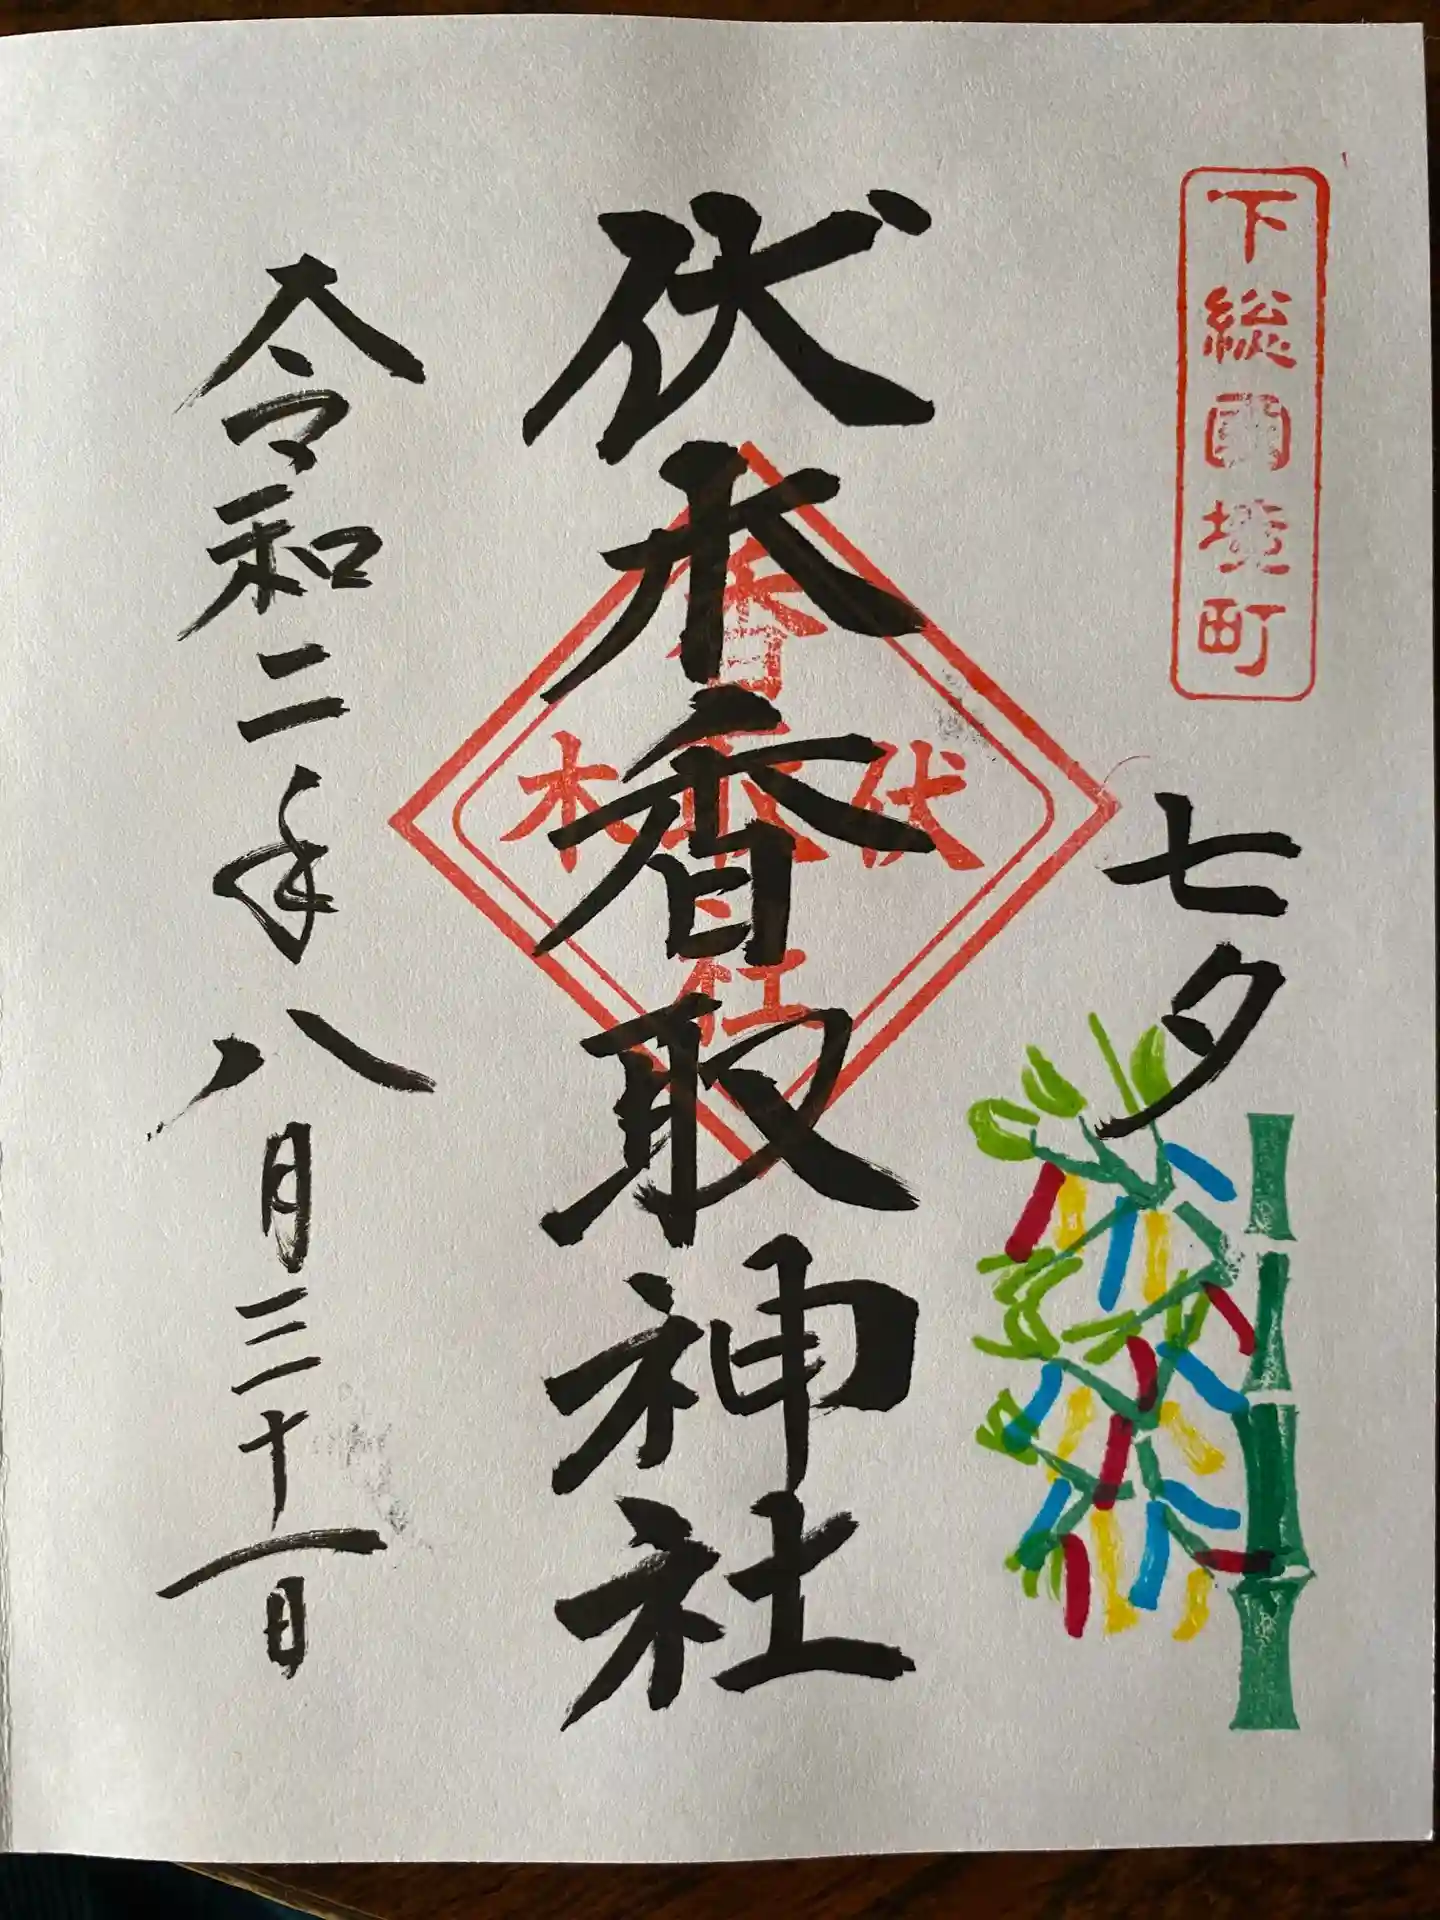 下総國境町
七夕
伏木香取神社
香取社
伏木
令和二年八月三十一日